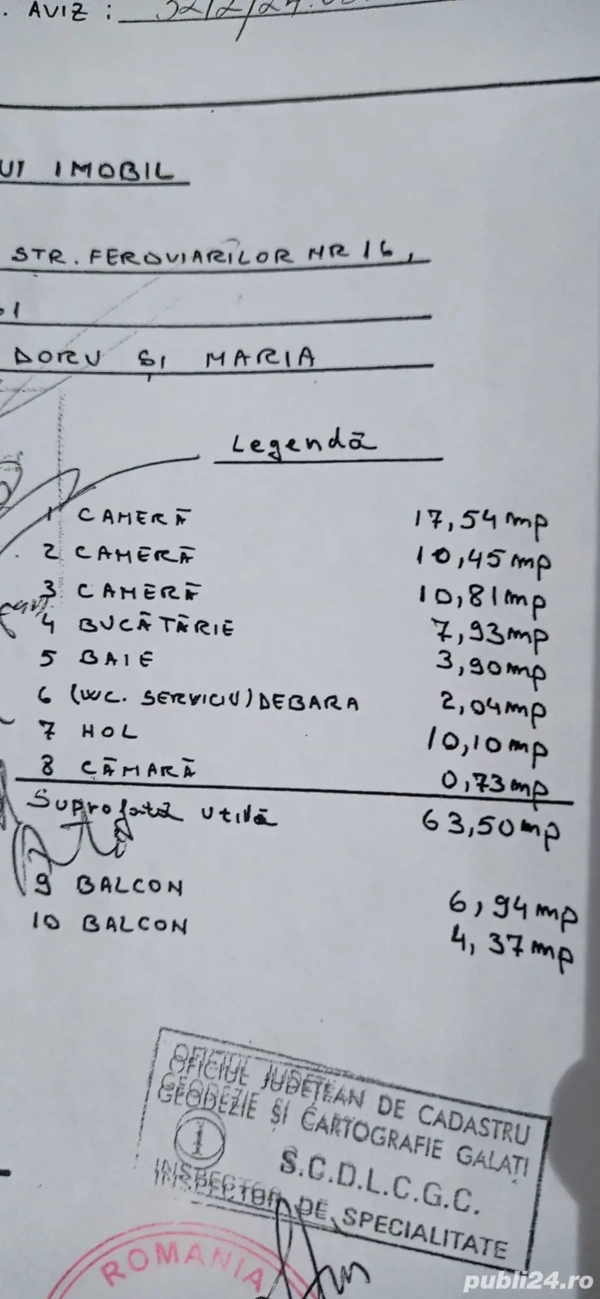 . AVIZ :
UI IMOBIL
STR. FEROVIARILOR NR 16,
DORU ȘI MARIA
Legendă
1 CAMERĂ 17,54 mp
2 CAMERĂ 10,45 mp
3 CAMERĂ 10,81 mp
4 BUCĂTĂRIE 7,93 mp
5 BAIE 3,90 mp
6 (WC. SERVICIU) DEBARA 2,04 mp
7 HOL 10,10 mp
8 CĂMARĂ 0,73 mp
Suprafată utilă 63,50 mp
9 BALCON 6,94 mp
10 BALCON 4,37 mp
OFICIUL JUDEȚEAN DE CADASTRU
GEODEZIE ȘI CARTOGRAFIE GALAȚI
1
S.C.D.L.C.G.C.
INSPECTOR DE SPECIALITATE
ROMANIA
publi24.ro